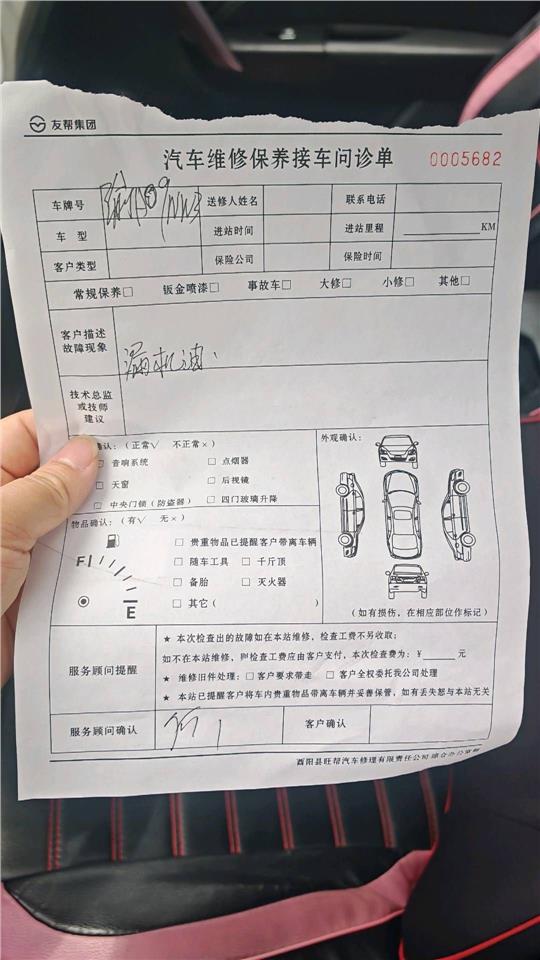 友帮集团
汽车维修保养接车问诊单 0005682
车牌号 送修人姓名 联系电话
车 型 进站时间 进站里程 KM
客户类型 保险公司 保险时间
常规保养□ 钣金喷漆□ 事故车□ 大修□ 小修□ 其他□
客户描述
故障现象
漏机油、
技术总监
或技师
建议
确认：（正常√ 不正常×） 外观确认：
□ 音响系统 □ 点烟器
□ 天窗 □ 后视镜
□ 中央门锁（防盗器） □ 四门玻璃升降
物品确认：（有√ 无×）
□ 贵重物品已提醒客户带离车辆
F □ 随车工具 □ 千斤顶
□ 备胎 □ 灭火器
E □ 其它（ ）
（如有损伤，在相应部位作标记）
服务顾问提醒
★ 本次检查出的故障如在本站维修，检查工费不另收取；
如不在本站维修，则检查工费应由客户支付，本次检查费为：￥ 元
★ 维修旧件处理：□ 客户要求带走 □ 客户全权委托我公司处理
★ 本站已提醒客户将车内贵重物品带离车辆并妥善保管，如有丢失恕与本站无关
服务顾问确认 客户确认
酉阳县旺帮汽车修理有限责任公司